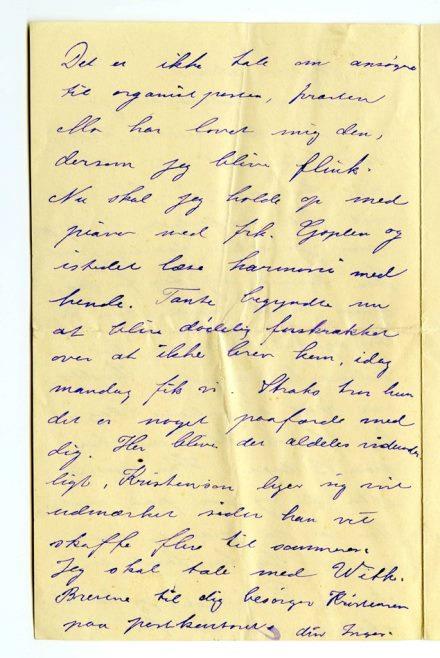 Det er ikke tale om ansøgre
til organistposten, præsten
Mo har lovet mig den,
dersom jeg bliver flink.
Nu skal jeg holde op med
piano med frk. Goplen og
istedet læse harmoni med
hende. Tante begyndte nu
at blive dødelig forskrækket
over at ikke brev kom, idag
mandag fik vi. Straks tror hun
det er noget paafærde med
dig. Her bliver det aldeles vidunder
ligt, Kristensen siger sig
udmærket siden han vil
skaffe flere til sommeren.
Jeg skal tale med Wilh.
Brevene til dig besørger Kristensen
paa postkontoret. din Inger.